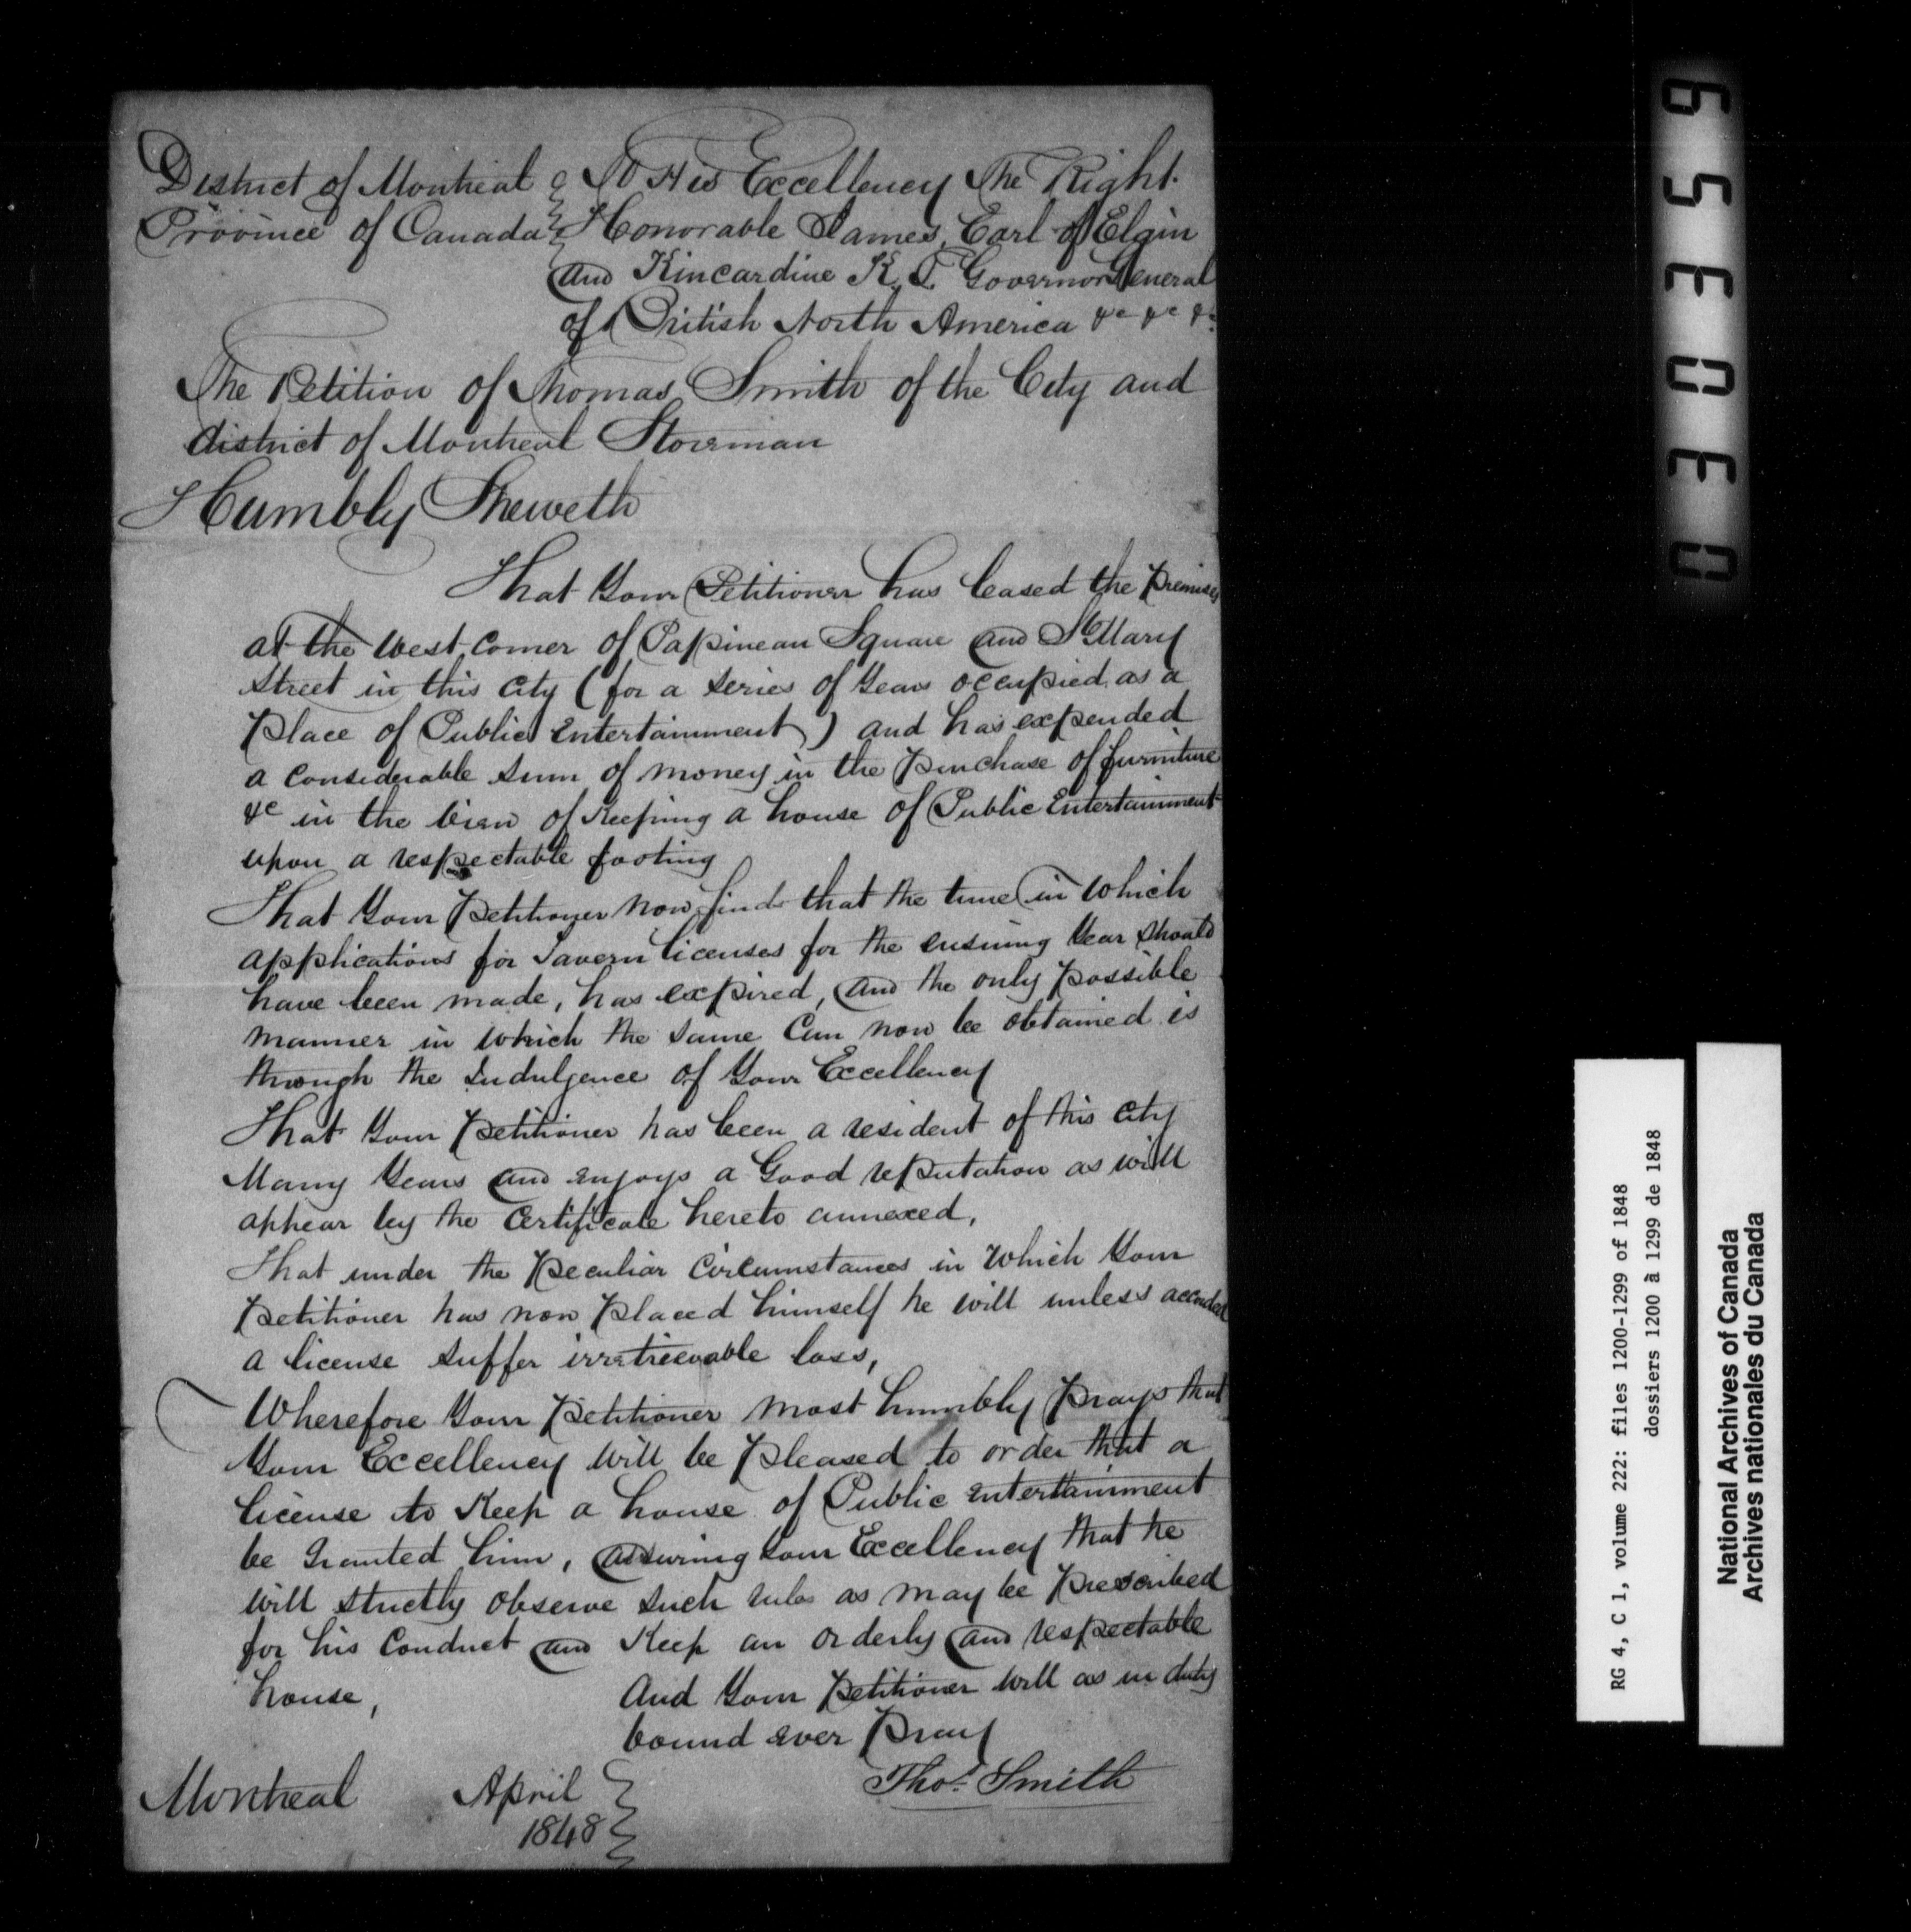 District of Montreal } To His Excellency The Right
Province of Canada } Honorable James, Earl of Elgin
and Kincardine K. T. Governor General
of British North America &c &c &c
The Petition of Thomas Smith of the City and
district of Montreal Storeman
Humbly Sheweth
That Your Petitioner has leased the Premises
at the West Corner of Papineau Square and St Mary
Street in this City (for a series of Years occupied as a
Place of Public Entertainment) and has expended
a Considerable Sum of money in the Purchase of furniture
&c in the view of Keeping a house of Public Entertainment
upon a respectable footing
That Your Petitioner now finds that the time in which
applications for Tavern licenses for the ensuing Year should
have been made, has expired, and the only possible
manner in which the same Can now be obtained is
through the Indulgence of Your Excellency
That Your Petitioner has been a resident of this City
Many Years and enjoys a Good reputation as will
appear by the Certificate hereto annexed,
That under the Peculiar Circumstances in which Your
Petitioner has now Placed himself he will unless accorded
a license suffer irretrievable loss,
Wherefore Your Petitioner most humbly Prays that
Your Excellency will be Pleased to order that a
license to Keep a house of Public Entertainment
be Granted him, assuring Your Excellency that he
will strictly observe such rules as may be Prescribed
for his Conduct and Keep an orderly and respectable
house,
And Your Petitioner will as in duty
bound ever Pray
Thos. Smith
Montreal April }
1848 }
030359
RG 4, C 1, volume 222: files 1200-1299 of 1848
dossiers 1200 à 1299 de 1848
National Archives of Canada
Archives nationales du Canada